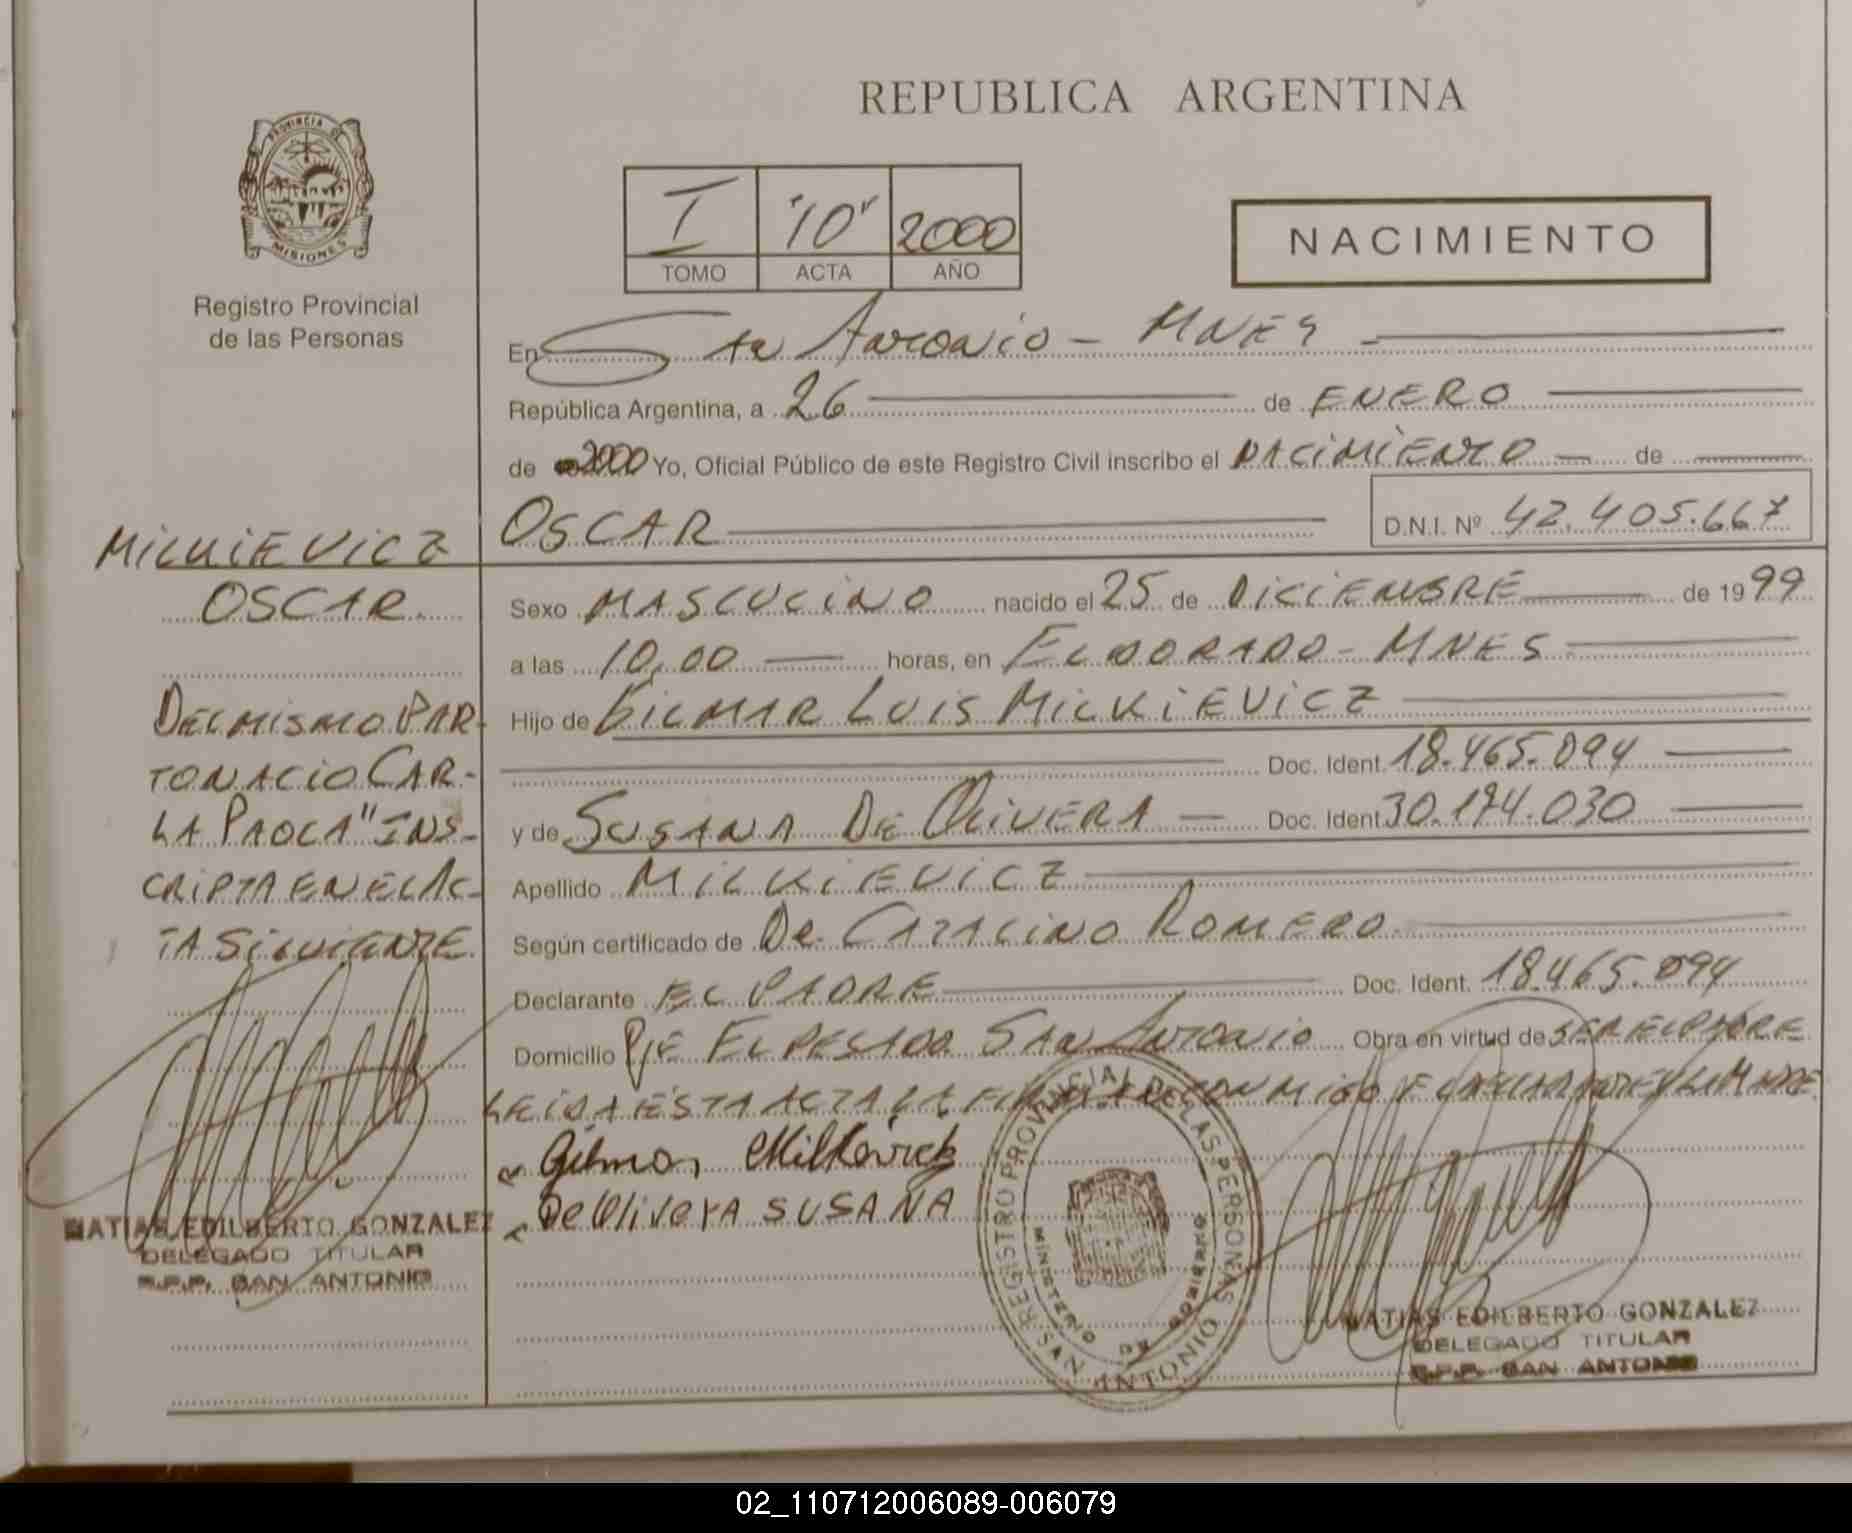 REPUBLICA ARGENTINA
PROVINCIA DE
MISIONES
Registro Provincial
de las Personas
I "10" 2000
TOMO ACTA AÑO
NACIMIENTO
En San Antonio - MNES
República Argentina, a 26 de ENERO
de 2000 Yo, Oficial Público de este Registro Civil inscribo el NACIMIENTO de
OSCAR D.N.I. Nº 42.405.667
MILKIEVICZ
OSCAR.
Sexo MASCULINO nacido el 25 de DICIEMBRE de 1999
a las 10,00 horas, en ELDORADO - MNES
Hijo de GILMAR LUIS MILKIEVICZ
Doc. Ident. 18.465.094
y de SUSANA DE OLIVERA Doc. Ident 30.174.030
Apellido MILKIEVICZ
Según certificado de DR. CATALINO ROMERO
Declarante EL PADRE Doc. Ident. 18.465.094
Domicilio PJE EL PESADO SAN ANTONIO Obra en virtud de SER EL PADRE
LEIDA ESTA ACTA LA FIRMAN CONMIGO EL DECLARANTE Y LA MADRE
DEL MISMO PAR-
TO NACIO CAR-
LA PAOLA" INS-
CRIPTA EN EL AC-
TA SIGUIENTE.
Gilmar Milkievicz
De Olivera SUSANA
REGISTRO PROVINCIAL DE LAS PERSONAS
SAN ANTONIO
MINISTERIO DE GOBIERNO
MATIAS EDILBERTO GONZALEZ
DELEGADO TITULAR
R.P.P. SAN ANTONIO
MATIAS EDILBERTO GONZALEZ
DELEGADO TITULAR
R.P.P. SAN ANTONIO
02_110712006089-006079